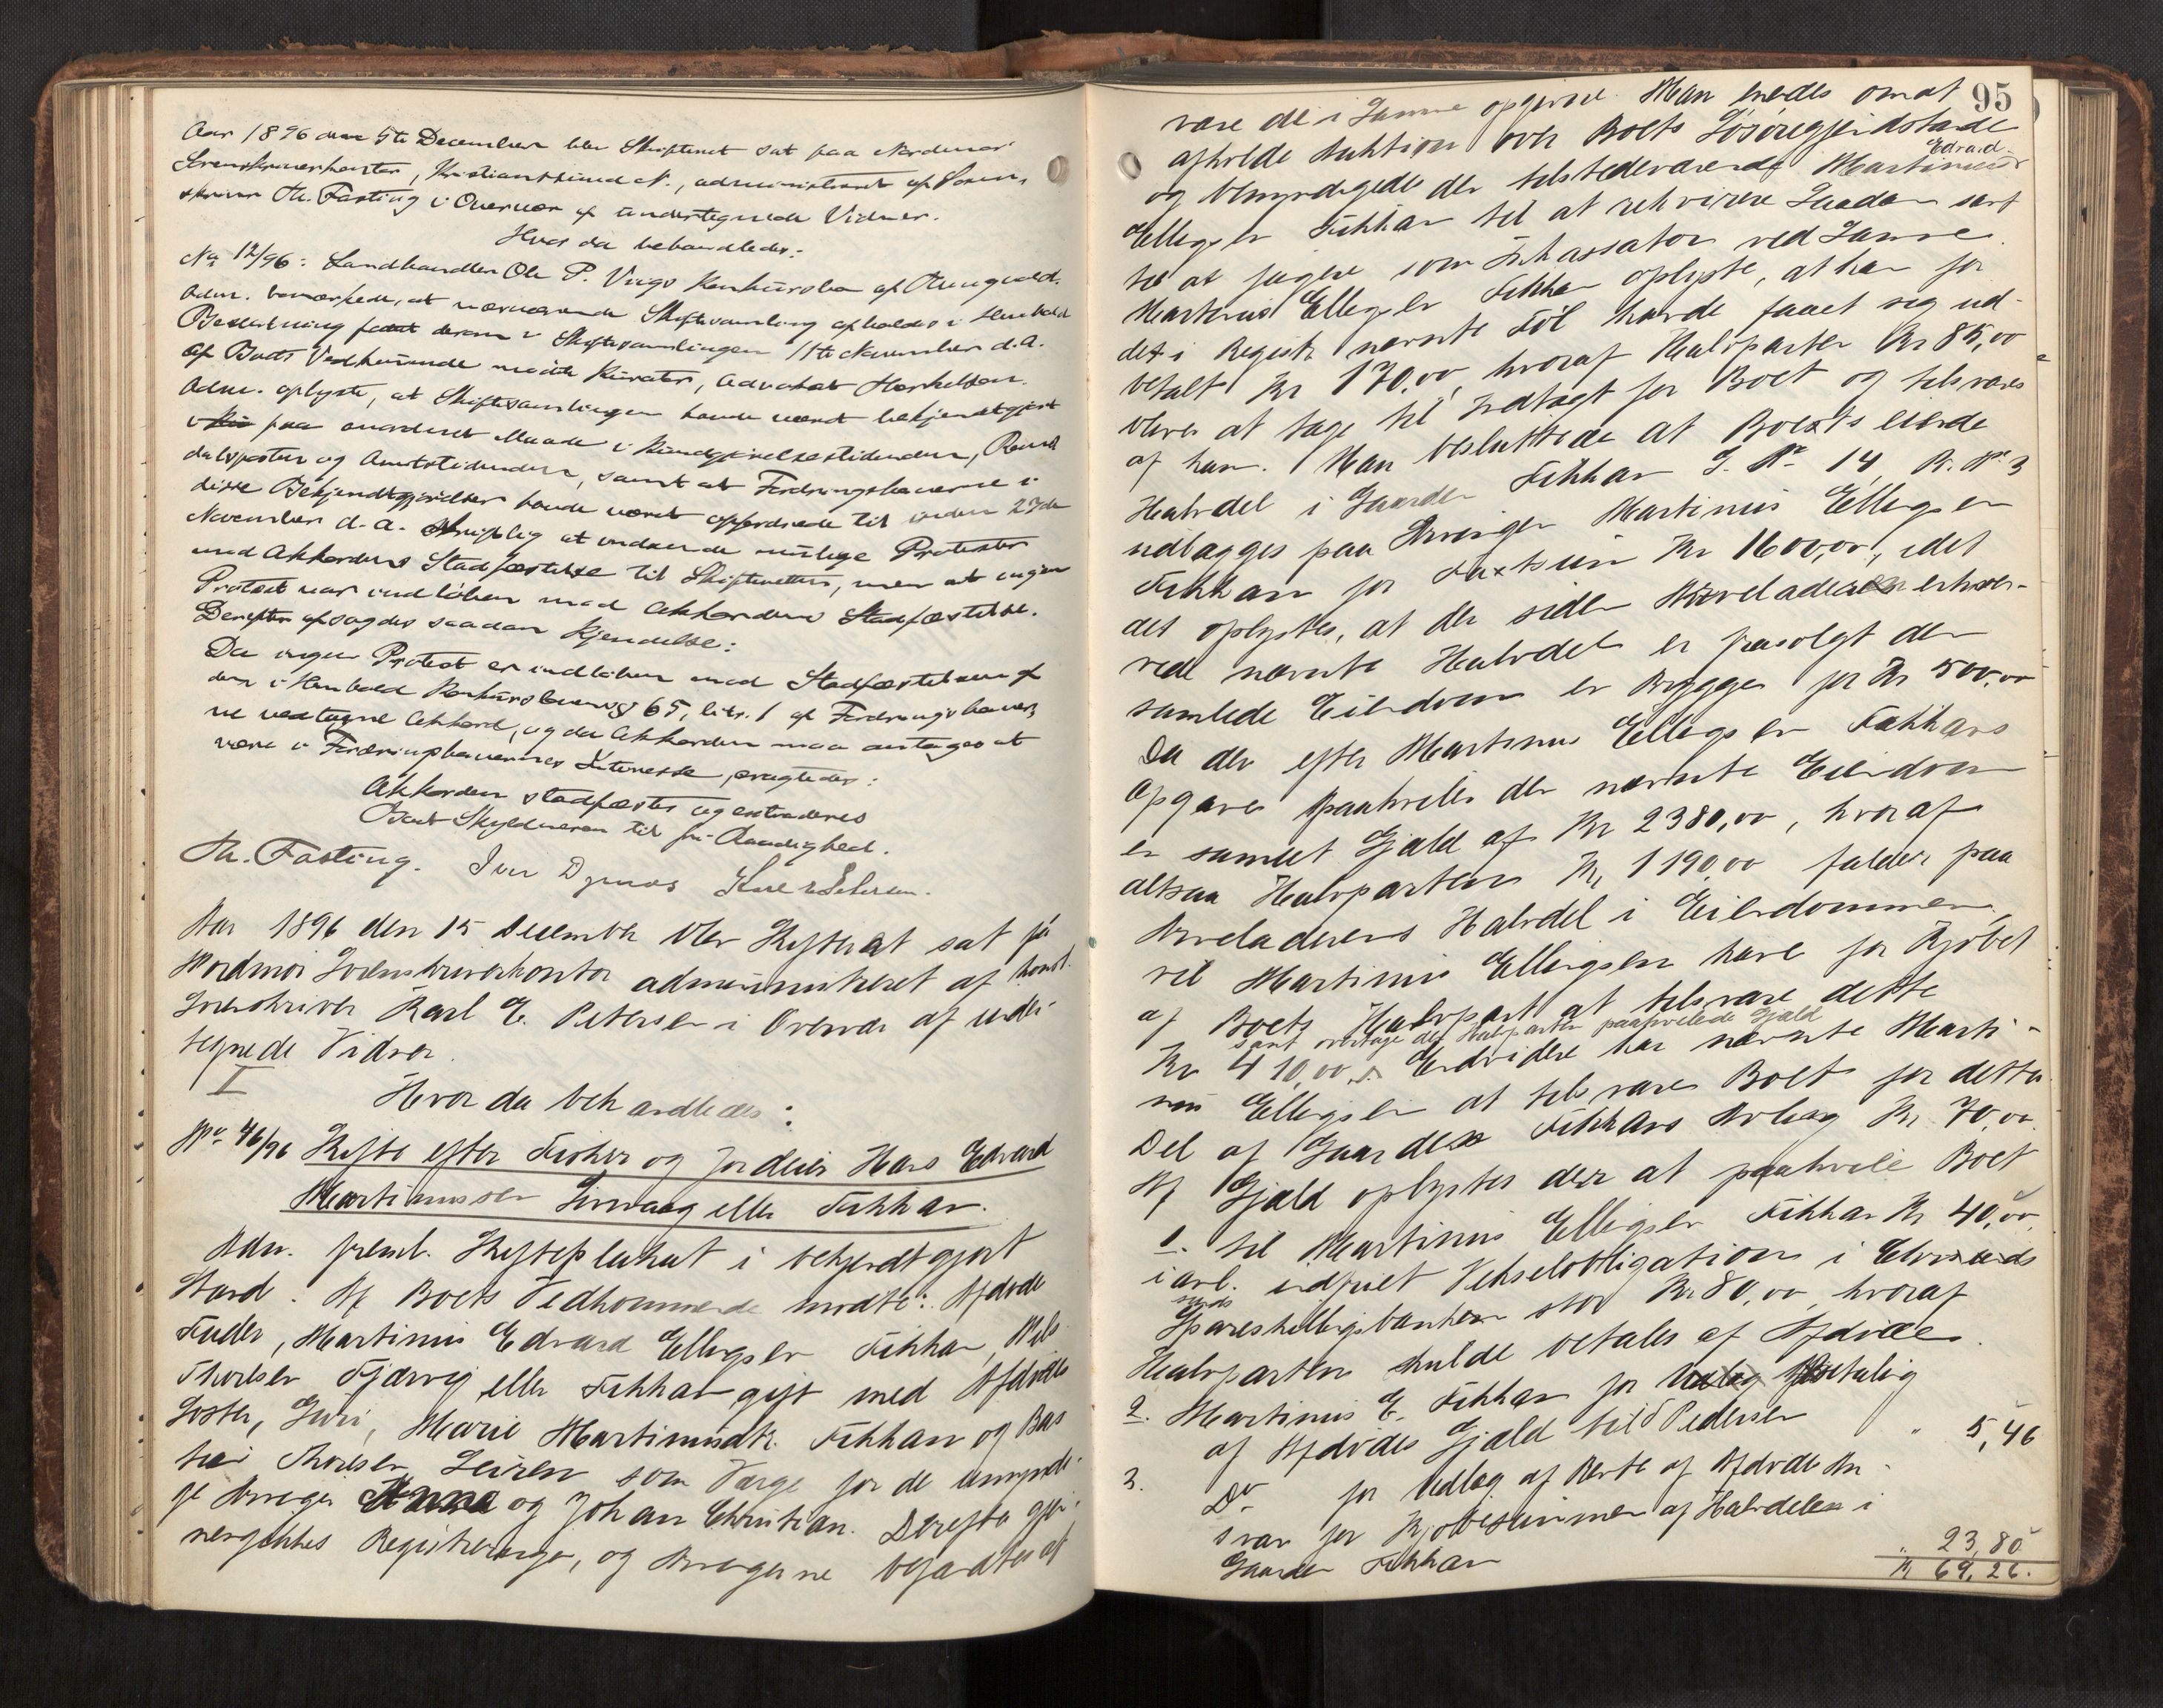 Aar 1896 den 5te December blev Skifteret sat paa Nordmør
Sorenskriverkontor, Kristianssund N., administreret af Soren-
skriver Th. Fasting i Overvær af undertegnede Vidner.
Hvor da behandledes:
No 12/96: Landhandler Ole P. Viigs Konkursbo af
Adm. bemærkede, at nærværende Skiftesamling afholdes i Henhold
Beslutning fattet derom i Skiftesamlingen 11te November d.A.
Af Boets Vedkommende mødte Kurator, Advokat
Adm. oplyste, at Skiftesamlingen havde været bekjendtgjort
paa anordnet Maade i Kundgjørelsestidenden, Roms
dalsposten og Amtstidenden, samt at Fordringshaverne i
disse Bekjendtgjørelser havde været opfordrede til inden 27de
November d.A. skriftlig at indsende mulige Protester
mod Akkordens Stadfæstelse til Skifteretten, men at ingen
Protest var indløben mod Akkordens Stadfæstelse.
Derefter afsagdes saadan Kjendelse:
Da ingen Protest er indløben mod Stadfæstelsen af
den i Henhold Konkurslovens § 65, litr. 1 af Fordringshaver-
ne vedtagne Akkord, og da Akkorden maa antages at
være i Fordringshavernes Interesse, eragtedes:
Akkorden stadfæstes og extraderes
Boet Skyldneren til fri Raadighed.
Th. Fasting. Iver Dyrnæs
Aar 1896 den 15 December blev Skifteret sat på
Nordmøre Sorenskriverkontor administreret af konst.
Sorenskriver Karl E. Petersen i Overvær af under-
tegnede Vidner.
I
Hvor da behandledes:
No 46/96 Skifte efter Fisker og Jordeier Hans Edvard
Martinussen eller Fikkan.
Adm. freml. Skifteplakat i bekjendtgjort
Stand. Af Boets Vedkommende mødte: Afdøde
Fader, Martinus Edvard Ellingsen Fikkan, Nils
Thorlsen eller Fikkan gift med Afdødes
Søster, Guri, Marie Martinusdtr. Fikkan og Bas
tian Thorlsen Leiren som Værge for de umyndi-
ge Arvinger Anna og Johan Christian. Derefter gjen-
nemgikkes Registreringen, og Arvingerne bejaedtes at
95
være de i Samme opgivne. Man enedes om at
afholde Auktion over Boets Løsøregjenstande
Edvard
og bemyndigede den tilstedeværende Martinus
Ellingsen Fikkan til at rekvirere Saadan samt
til at fugere som Inkassator ved Samme.
Martinus Ellingsen Fikkan oplyste, at han for
det i Registr. nævnte Føl havde faaet sig ud-
betalt Kr 170,00, hvoraf Halvparten Kr 85,00
bliver at tage til Indtægt for Boet og tilsvares
af ham. Man besluttede at Boets eiende
Halvdel i Gaarden Fikkan G. No 14 B. No 3
udlægges paa Arvingen Martinus Ellingsen
Fikkan for Taxtsum Kr 1600,00, idet
det oplystes, at den siden Arveladeren erhver-
vede nævnte Halvdel er frasolgt den
samlede Eiendom en Brygge for Kr 500,00
Da der efter Martinus Ellingsen Fikkans
Opgave paahviler den nævnte Eiendom
en samlet Gjæld af Kr 2380,00, hvoraf
altsaa Halvparten Kr 1190,00 falder paa
Arveladerens Halvdel i Eiendommen,
vil Martinus Ellingsen have for Kjøbet
af Boets Halvpart at tilsvare dette
samt overtage den Halvparten paahvilende Gjæld
Kr 410,00. Endvidere har nævnte Marti-
nus Ellingsen at tilsvare Boet for dettes
Del af Gaarden Fikkans Avling Kr. 70,00.
Af Gjæld oplystes der at paahvile Boet
1. til Martinus Ellingsen Fikkan Kr 40,00
i anl. indfriet Vekselobligation i
sunds
Spareskillingsbanken stor Kr. 80,00, hvoraf
Halvparten skulde betales af Afdøde.
2. Martinus E. Fikkan for Udlæg Betaling
af Afdødes Gjæld til Pedersen " 5,46
3. Do for Udlæg af Rente af Afdødes An-
svar for Kjøbesummen af Halvdelen i
Gaarden Fikkan " 23,80
Kr 69,26.